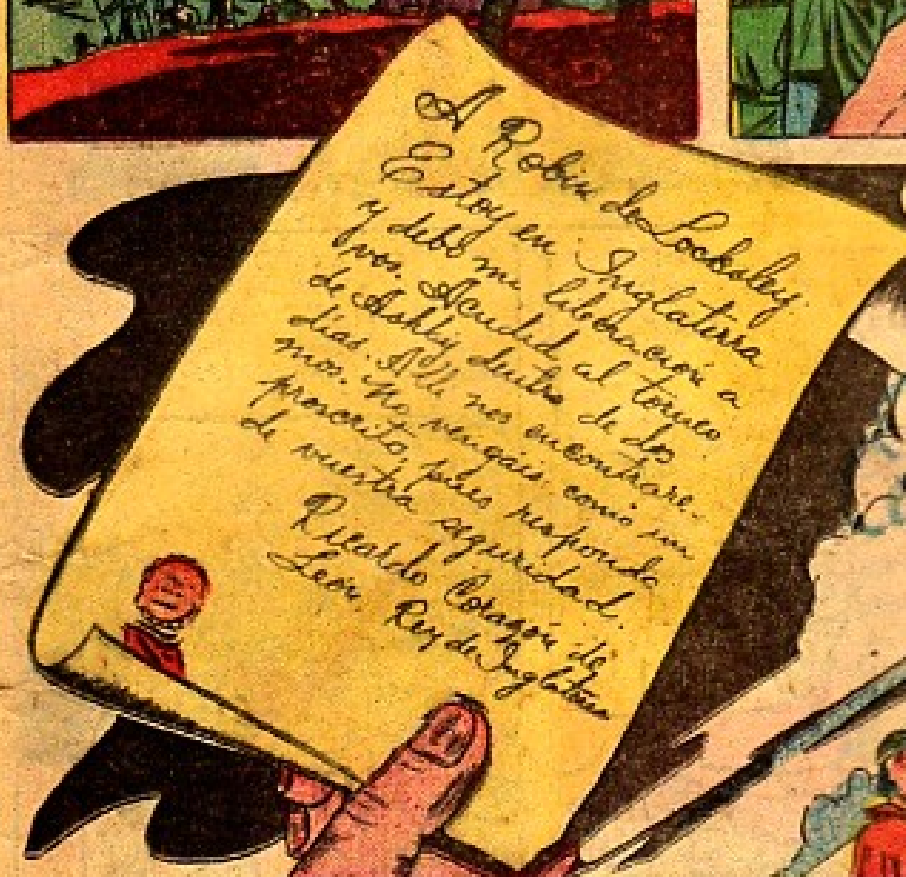 A Robin de Locksley.
Estoy en Inglaterra
y debo mi liberación a
vos. Acudid al torneo
de Ashby dentro de dos
días. Allí nos encontrare-
mos. No vengáis como un
proscrito, pues respondo
de vuestra seguridad.
Ricardo Corazón de
León.
Rey de Inglaterra